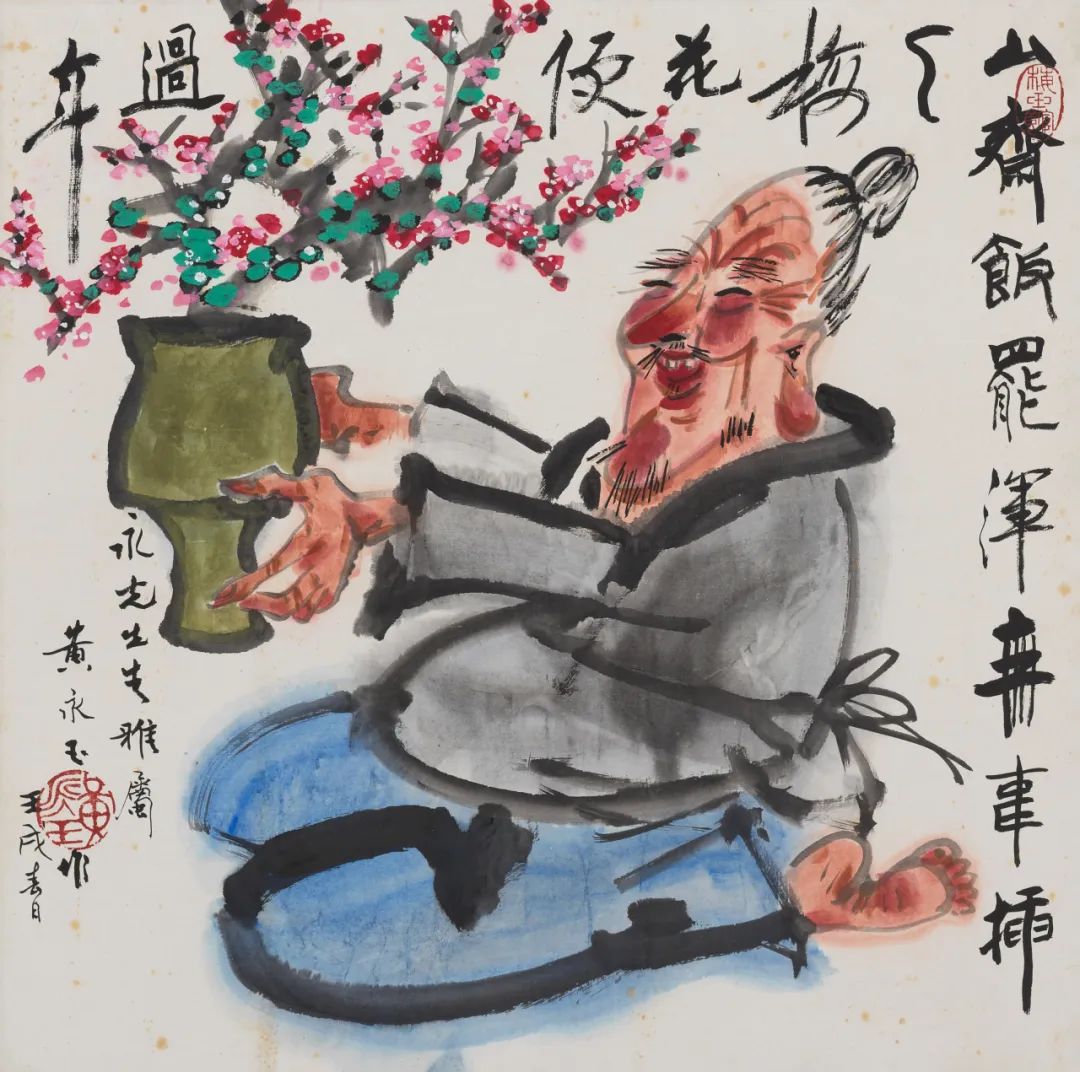 山齋飯罷渾無事插
了梅花便過年
永光先生雅屬
黃永玉作
壬戌春日